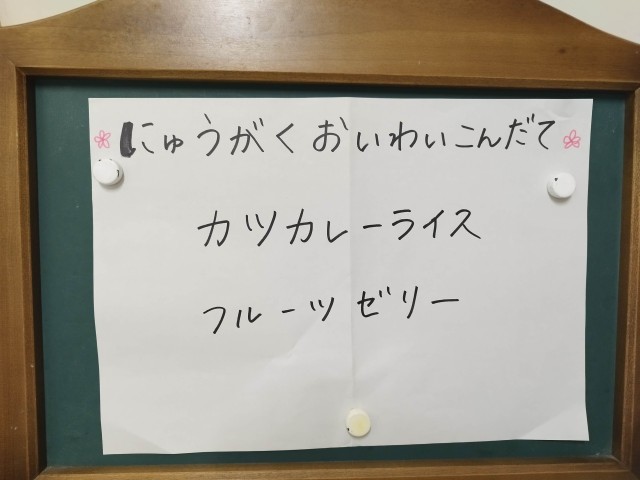 にゅうがく おいわい こんだて
カツカレーライス
フルーツ ゼリー